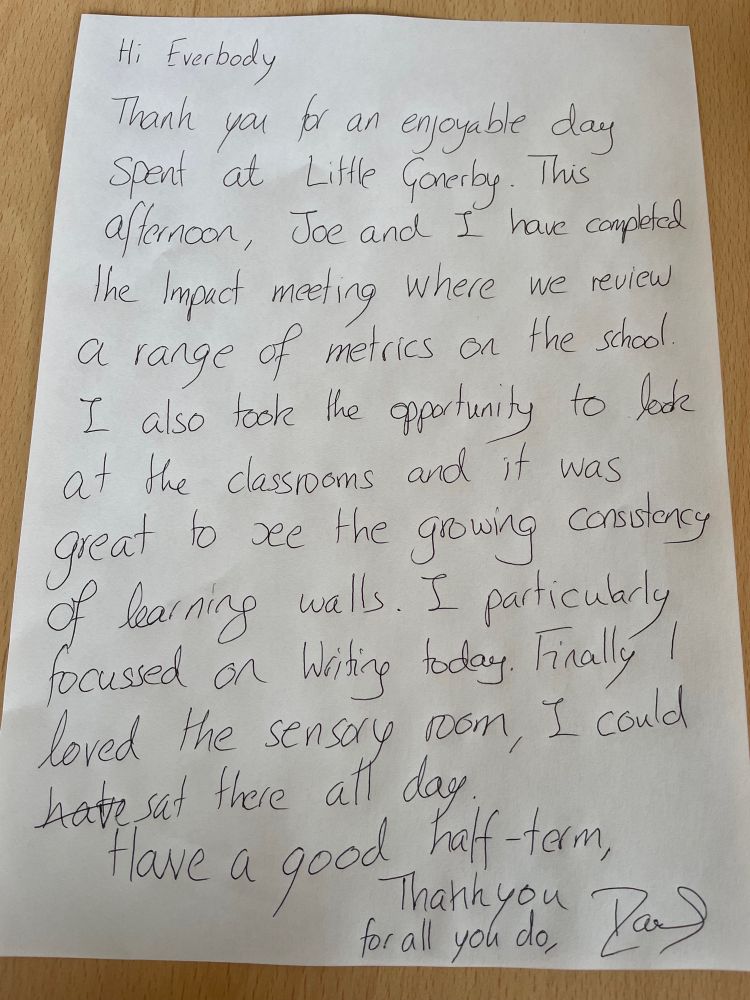 Hi Everbody
Thank you for an enjoyable day
spent at Little Gonerby. This
afternoon, Joe and I have completed
the Impact meeting where we review
a range of metrics on the school.
I also took the opportunity to look
at the classrooms and it was
great to see the growing consistency
of learning walls. I particularly
focussed on Writing today. Finally I
loved the sensory room, I could
have sat there all day.
Have a good half-term,
Thank you
for all you do,